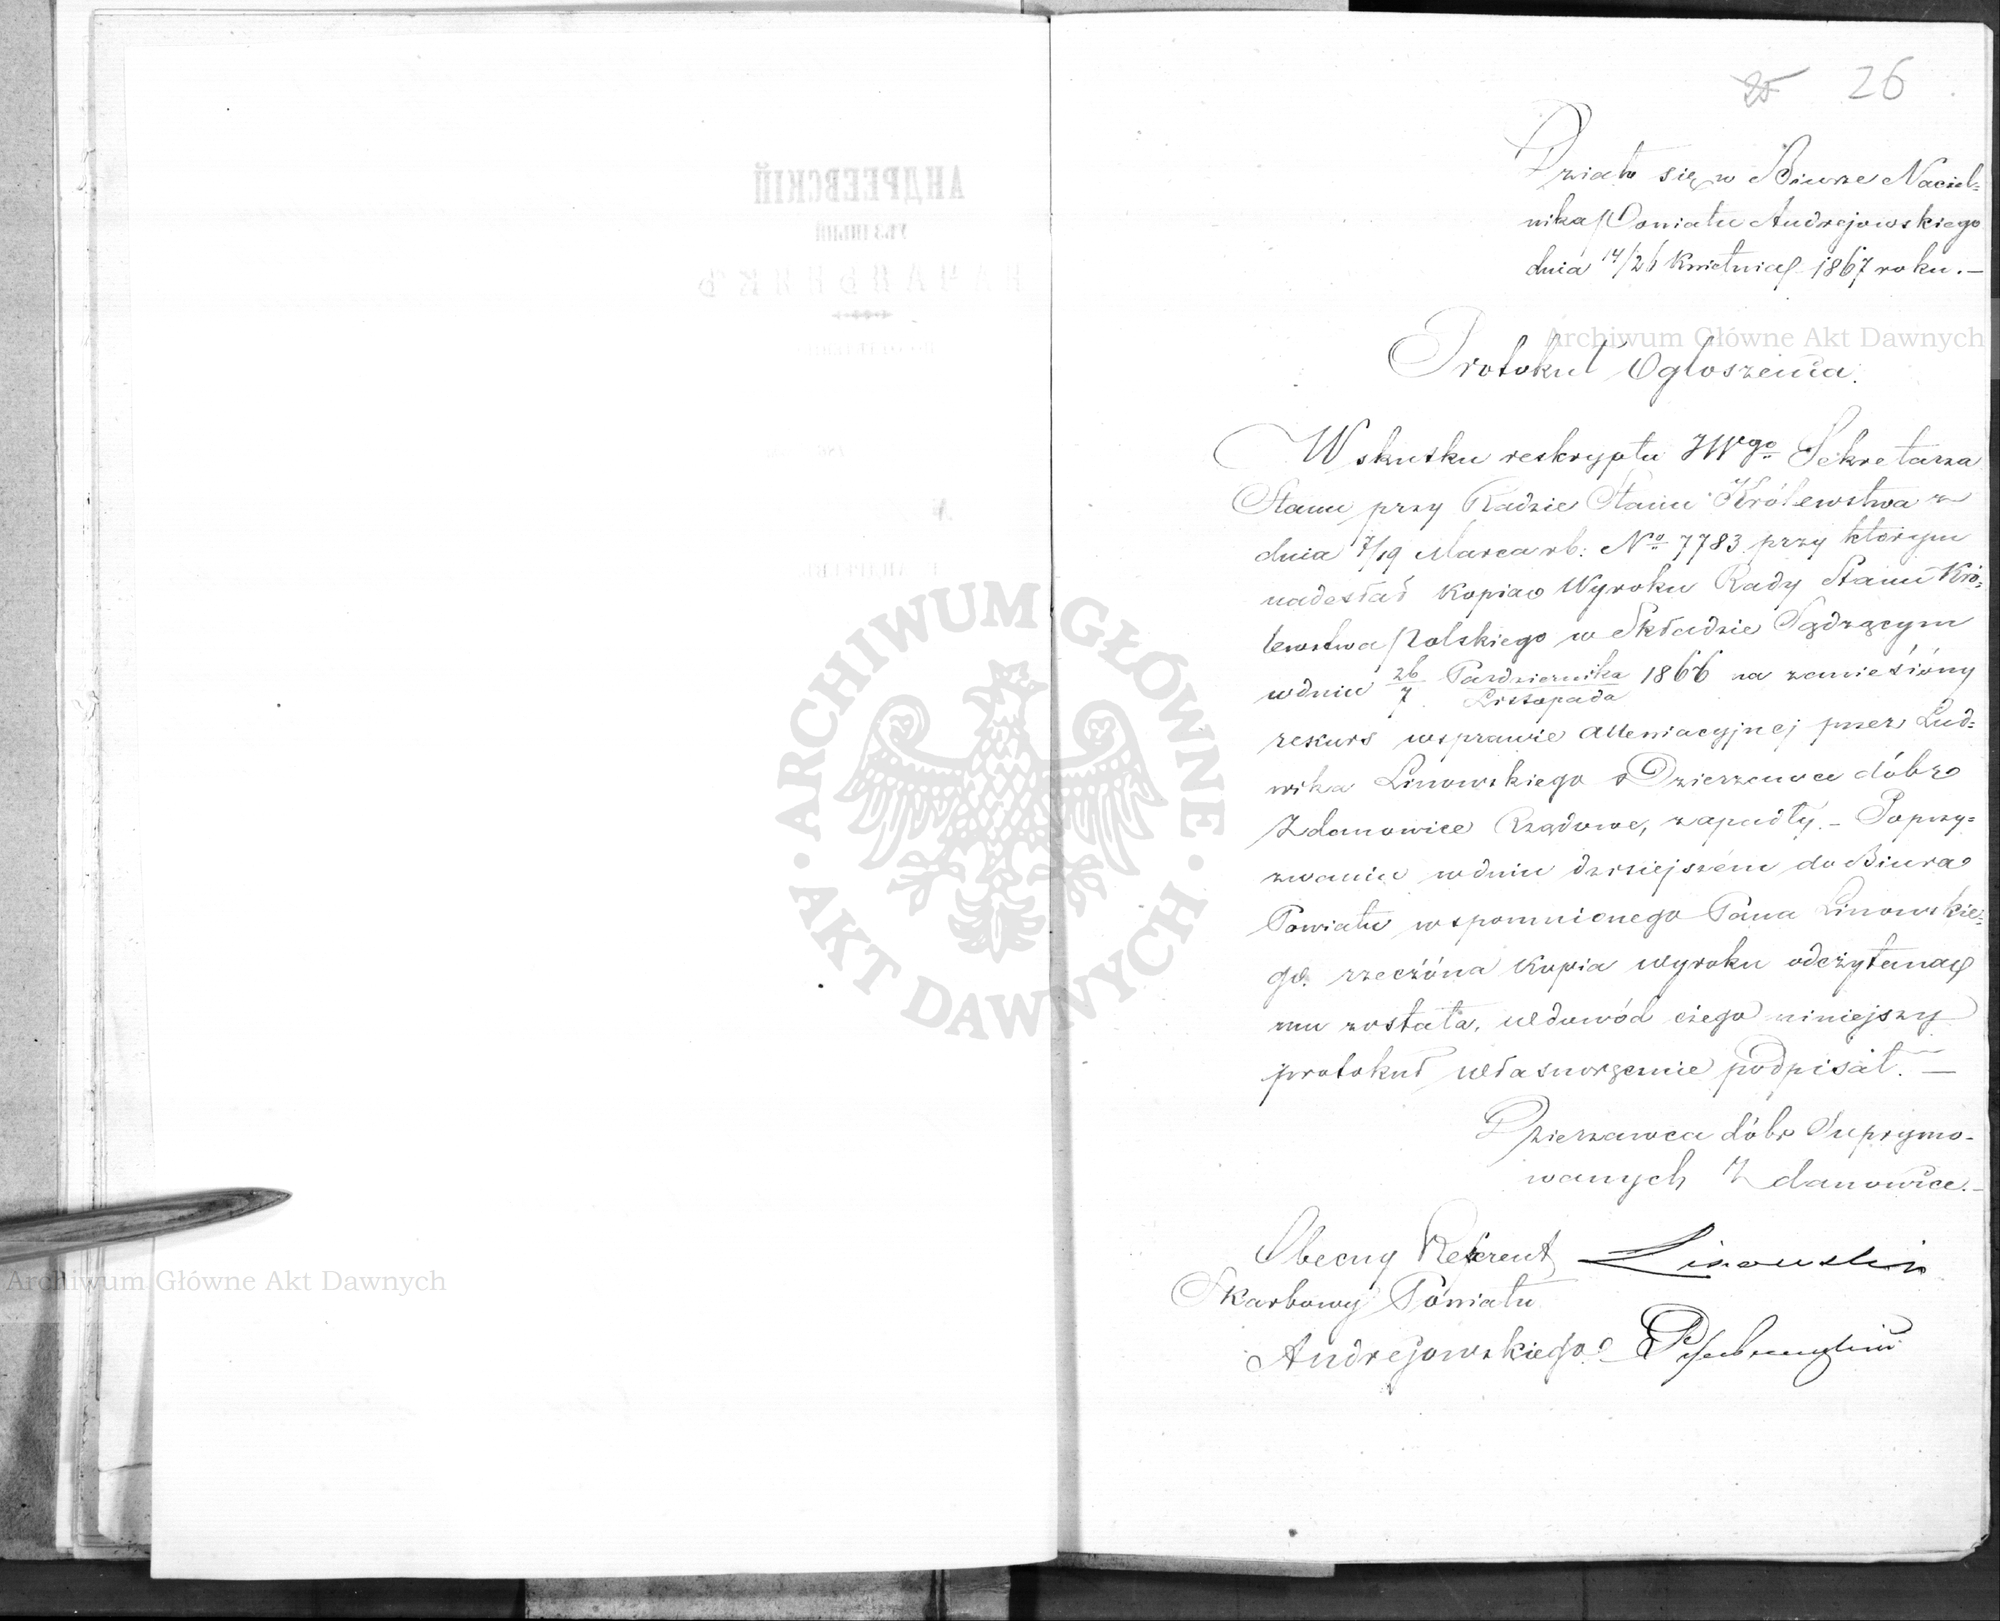 26
Działo się w Biurze Naczel=
nika Powiatu Andrejowskiego
dnia 14/26 Kwietnia 1867 roku. —
Protokuł Ogłoszenia.
W skutku reskryptu JWgo Sekretarza
Stanu przy Radzie Stanu Królewstwa z
dnia 7/19 Marca rb: No 7783 przy którym
nadesłał kopiao Wyroku Rady Stanu Kró=
lewstwa Polskiego w Składzie Sądzącym
w dniu 26/7 Pazdziernika/Listopada 1866 na zanieśiony
rekurs w sprawie przez Lud=
wika Linowskiego Dzierzawce dóbr
Zdanowice Rządowe, zapadły. — Poprzy=
zwaniu w dniu dzisiejszém do Biura
Powiatu wspomnionego Pana Linowskie=
go. rzeczóna Kopia wyroku odczytana
mu została, w dowód czego niniejszy
protokuł własnoręcznie podpisał. —
Dzierzawca dóbr Suprymo-
wanych Zdanowice. —
Obecny Referent Linowski
Skarbowy Powiatu
Andrejowskiego
АНДРЕЕВСКІЙ
УѢЗДНЫЙ
НАЧАЛЬНИКЪ
ARCHIWUM GŁÓWNE AKT DAWNYCH
Archiwum Główne Akt Dawnych
Archiwum Główne Akt Dawnych